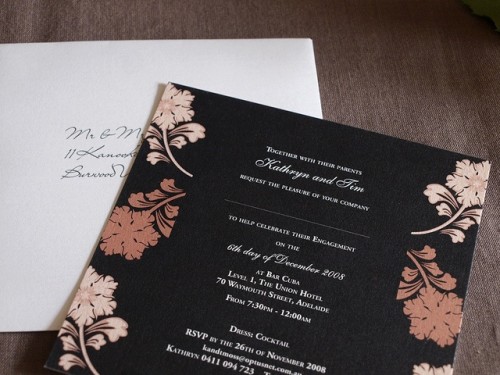 Mr & M
11 Kanoo
Burwood
Together with their parents
Kathryn and Tim
request the pleasure of your company
to help celebrate their Engagement
on the
6th day of December 2008
at Bar Cuba
Level 1, The Union Hotel
70 Waymouth Street, Adelaide
From 7:30pm - 12:00am
Dress: Cocktail
RSVP by the 26th of November 2008
kandtmoss@optusnet.com.au
Kathryn 0411 094 723